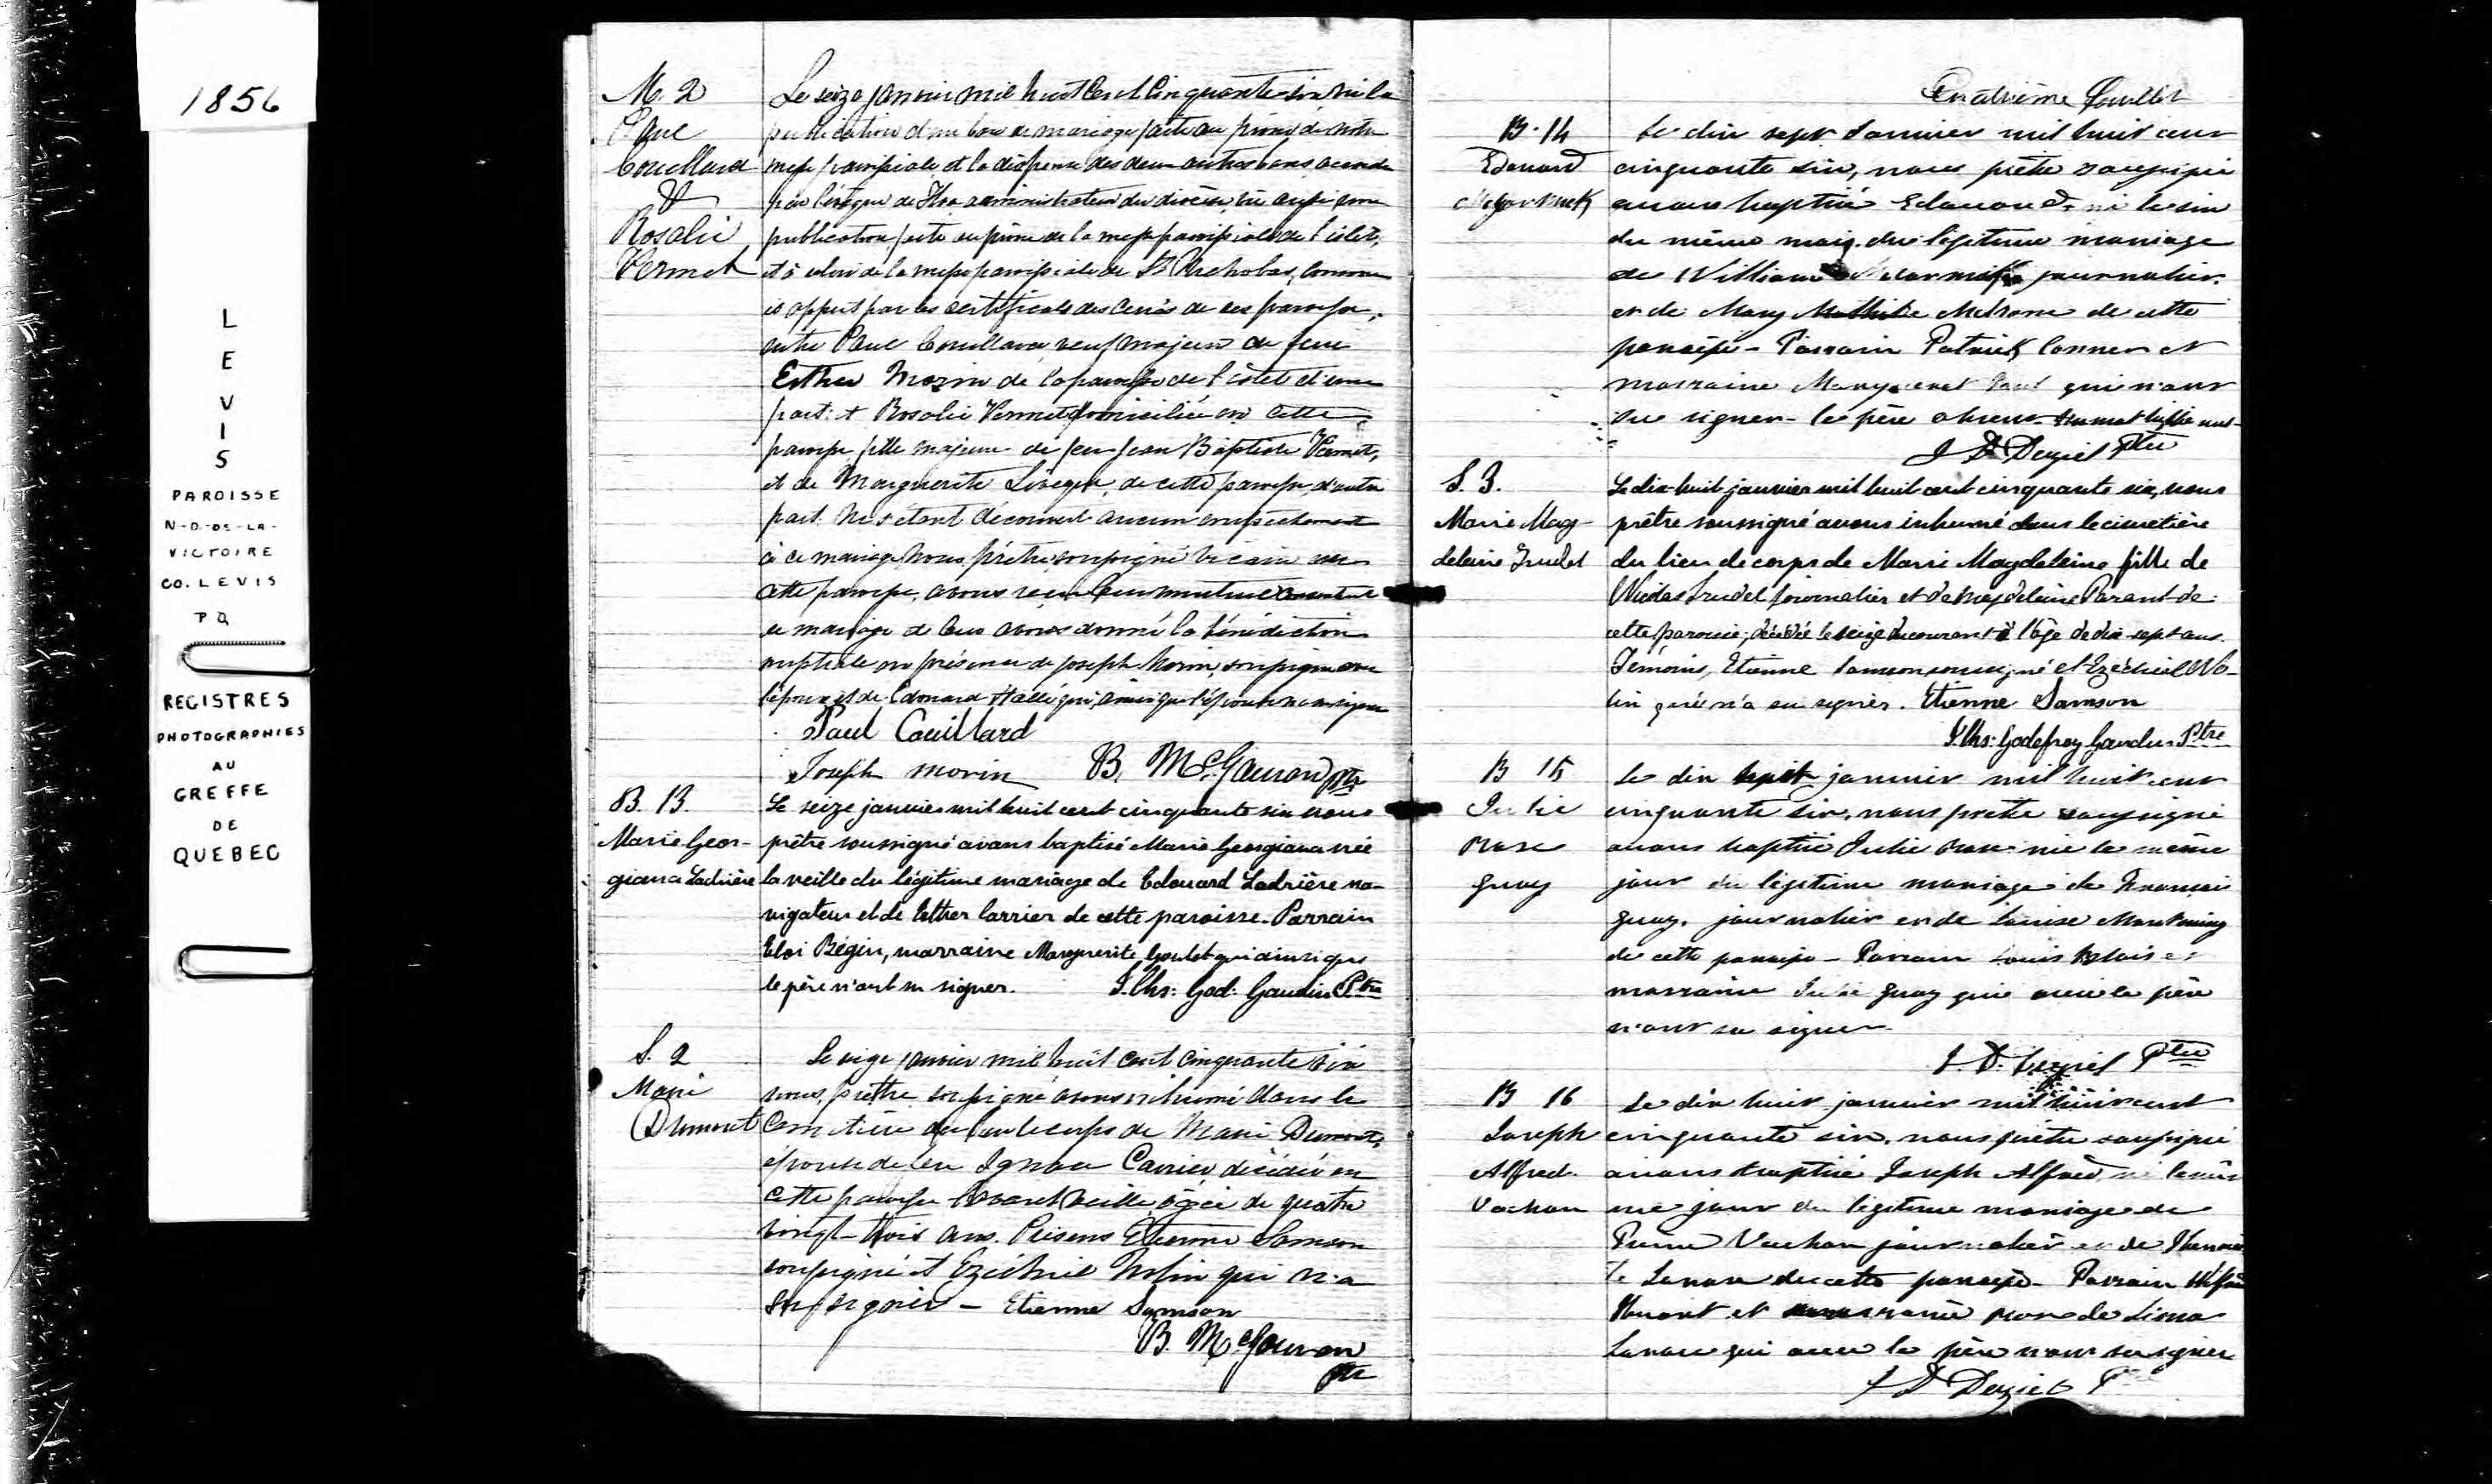 1856
L
E
V
I
S
PAROISSE
N-D-DE-LA-
VICTOIRE
CO. LEVIS
P Q
REGISTRES
PHOTOGRAPHIES
AU
GREFFE
DE
QUEBEC
M. 2
Paul
Couillard
&
Rosalie
Vermet
Le seize janvier mil huit cent cinquante six vu la
publication d'un ban de mariage faite au prône de notre
messe paroissiale et la dispense des deux autres bans accordée
par l'évêque de Tloa administrateur du diocèse, vu aussi une
publication faite au prône de la messe paroissiale de l'islet,
et à celui de la messe paroissiale de St comme
il appert par les certificats des curés de ces paroisses,
entre Paul Couillard veuf majeur de feue
Esther Morin de la paroisse de l'islet d'une
part; et Rosalie Vermet domiciliée en cette
paroisse fille majeure de feu Jean Baptiste Vermet,
et de Marguerite de cette paroisse d'autre
part. Ne s'étant découvert aucun empêchement
à ce mariage Nous prêtre soussigné vicaire de
cette paroisse, avons reçu leur mutuel consentement
de mariage et leur avons donné la bénédiction
nuptiale en présence de Joseph Morin, soussigné avec
l'époux et de Edouard Hallé qui, ainsi que l'épouse n'a su signer
Paul Couillard
Joseph morin B. McGauran Ptr
B. 13.
Marie Geor-
giana Ladrière
Le seize janvier mil huit cent cinquante six nous
prêtre soussigné avons baptisé Marie Georgiana née
la veille du légitime mariage de Edouard Ladrière na-
vigateur et de Esther Carrier de cette paroisse. Parrain
Eloi Bégin, marraine Marguerite Goulet qui ainsi que
le père n'ont su signer. J. Chs: God: Gaudin Ptre
S. 2
Marie
Dumont
Le seize janvier mil huit cent cinquante six
nous, prêtre soussigné avons inhumé dans le
Cimetière du lieu le corps de Marie Dumont,
épouse de feu Ignace Carrier, décédée en
cette paroisse l'avant veille âgée de quatre
vingt-trois ans. Présens Etienne Samson
soussigné et Ezéchiel Nolin qui n'a
su signer - Etienne Samson
B. McGauran
Ptr
Quatrième feuillet
B. 14
Edouard
McCormick
Le dix sept Janvier mil huit cent
cinquante six, nous prêtre soussigné
avons baptisé Edouard né le six
du même mois du légitime mariage
de William McCormick journalier
et de Mary de cette
paroisse - Parrain Patrick Conner et
marraine Margueret qui n'ont
su signer - le père absent - un mot nul -
J D Deziel Ptre
S. 3.
Marie Mag-
deleine Trudel
Le dix-huit janvier mil huit cent cinquante six, nous
prêtre soussigné avons inhumé dans le cimetière
du lieu le corps de Marie Magdeleine fille de
Nicolas Trudel journalier et de Magdeleine Parant de
cette paroisse, décédée le seize du courant à l'âge de dix-sept ans.
Témoins, Etienne Samson soussigné et Ezéchiel No-
lin qui n'a su signer. Etienne Samson
J. Chs: Godefroy Gaudin Ptre
B 15
Julie
Rose
Guay
Le dix huit janvier mil huit cent
cinquante six, nous prêtre soussigné
avons baptisé Julie Rose née le même
jour du légitime mariage de François
Guay, journalier et de Louise Montminy
de cette paroisse - Parrain Louis Blais et
marraine Julie Guay qui avec le père
n'ont su signer
J. D. Deziel Ptre
B 16
Joseph
Alfred
Vachon
Le dix huit janvier mil huit cent
cinquante six, nous prêtre soussigné
avons baptisé Joseph Alfred né le mê-
me jour du légitime mariage de
Pierre Vachon journalier et de
de cette paroisse - Parrain
Huart et marraine Rose de Lima
qui avec le père n'ont su signer
J D Deziel P